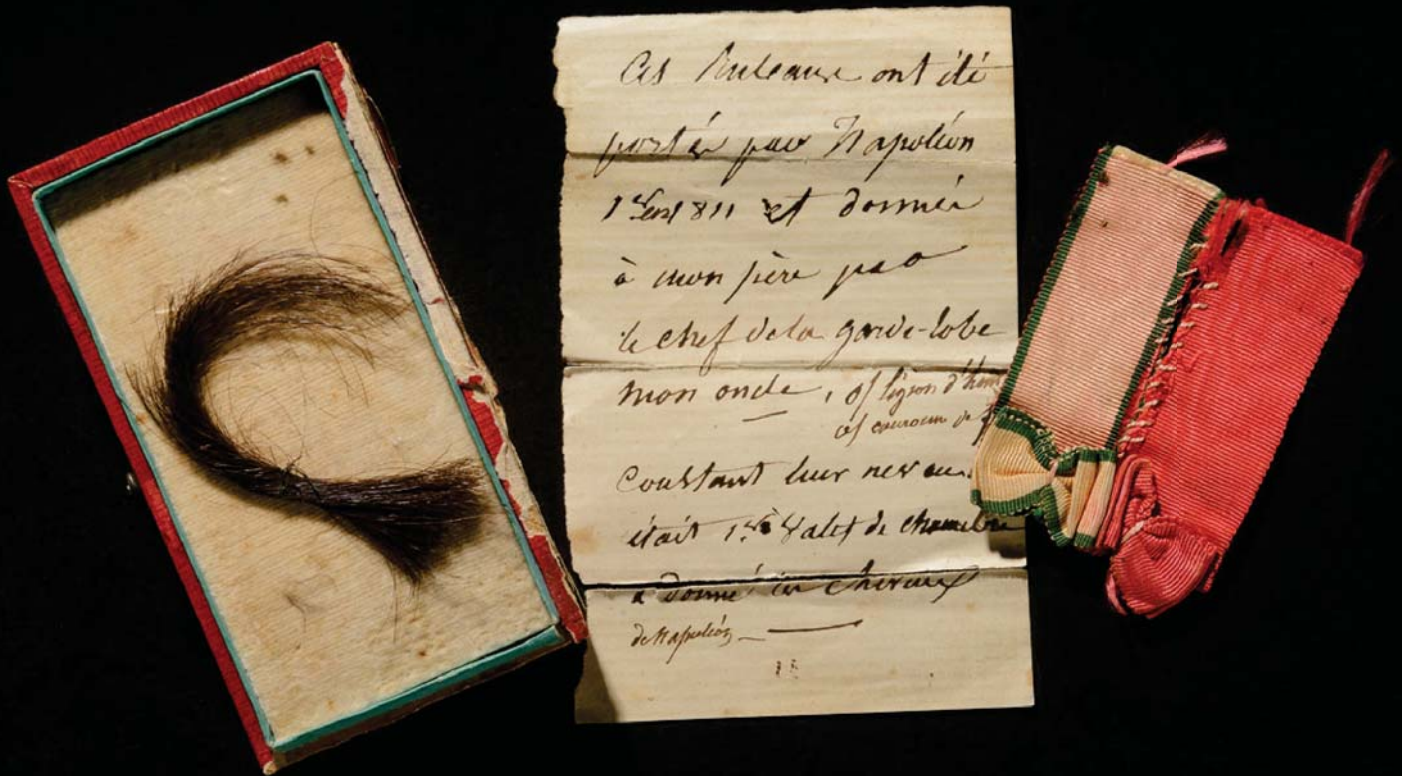 Ces Rubeaux ont été
portés par Napoléon
1er en 1811 et donnés
à mon père par
le chef de la garde-robe
mon oncle, of légion d'hon
of couronne de
Constant leur neveu
était 1er Valet de chambre
a donné ces cheveux
de Napoléon